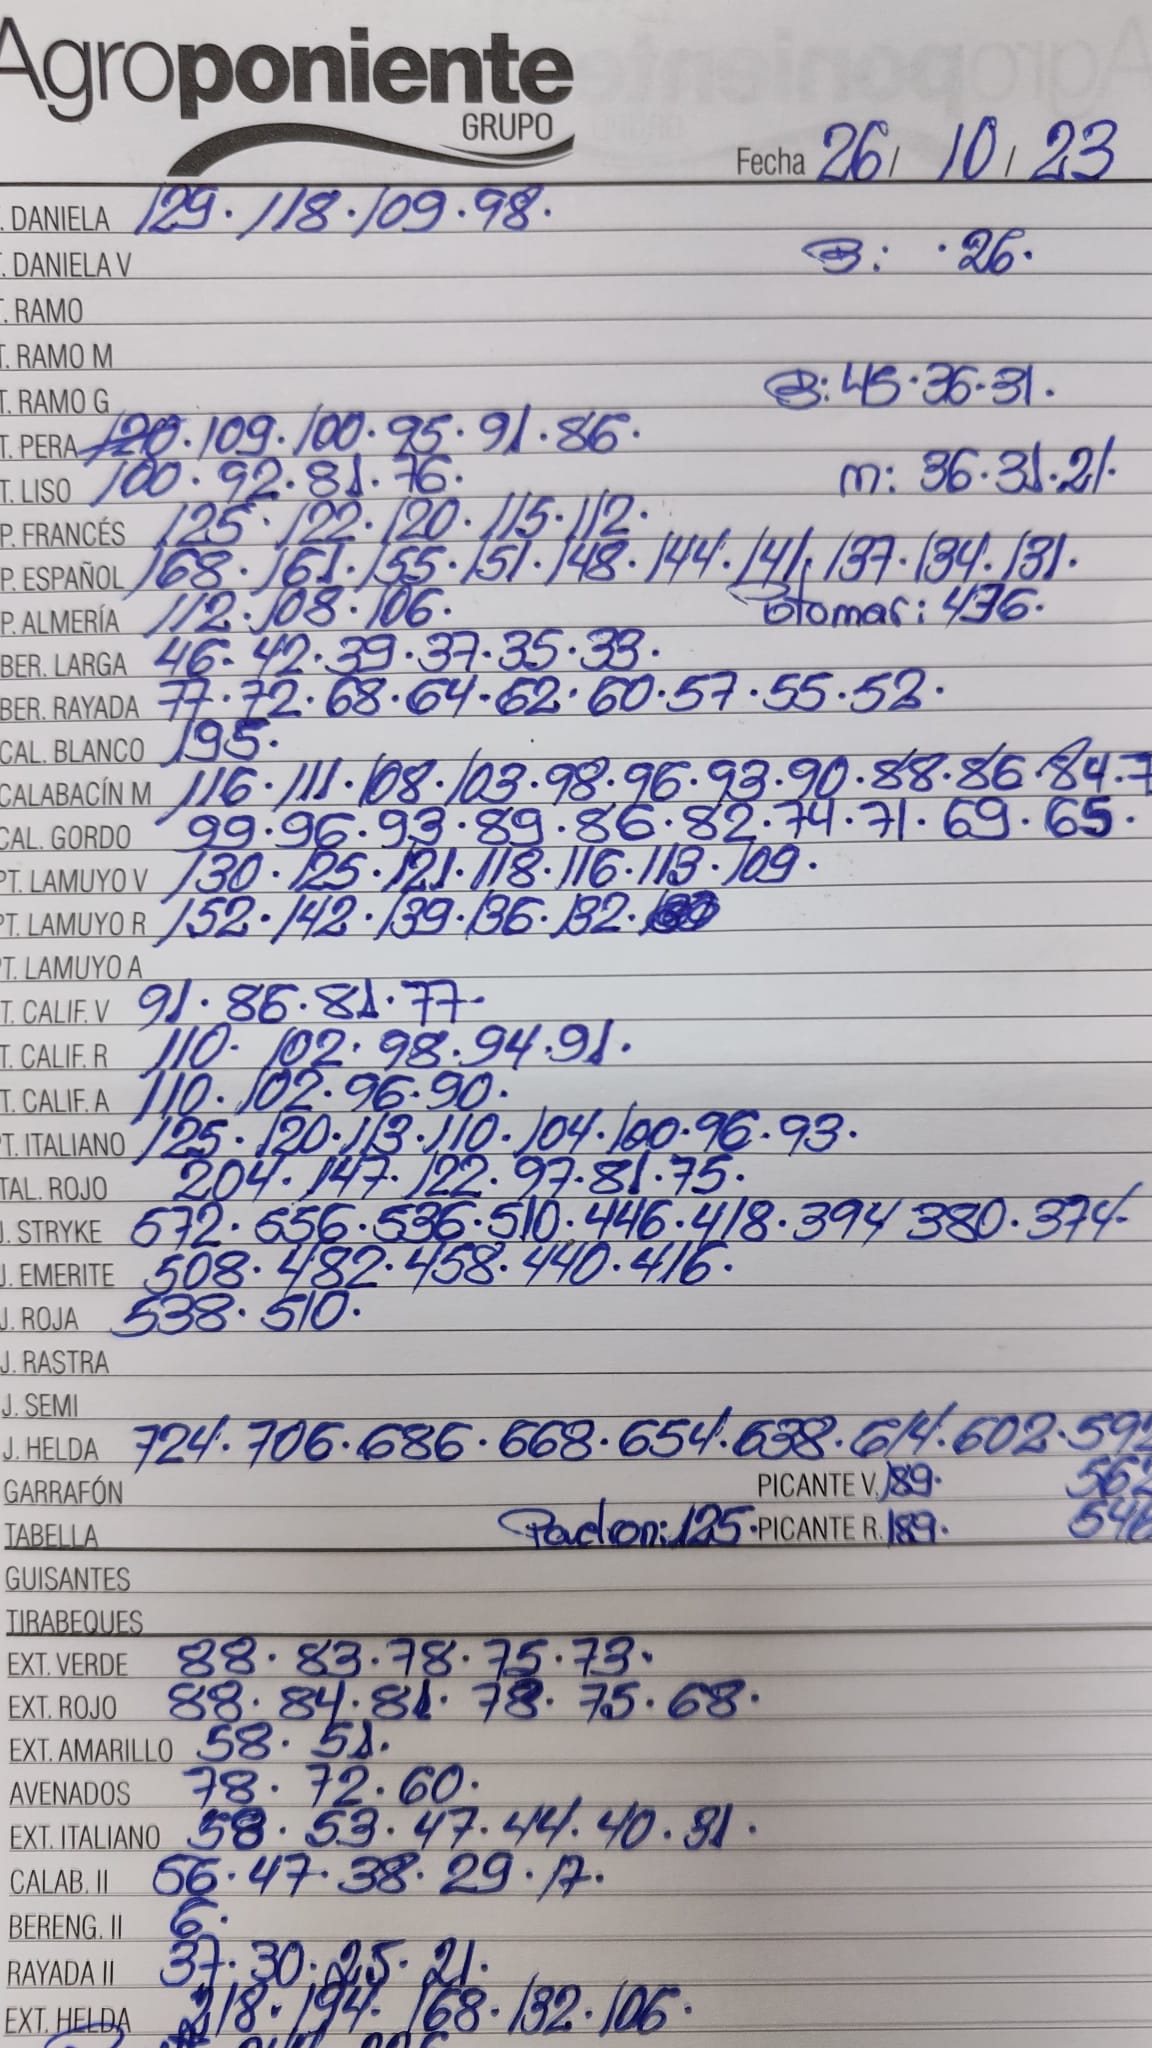 Agroponiente
GRUPO
Fecha 26/ 10/ 23
T. DANIELA 129. 118. 109. 98.
T. DANIELA V B: . 26.
T. RAMO
T. RAMO M
T. RAMO G B: 45. 36. 31.
T. PERA 120. 109. 100. 95. 91. 86.
T. LISO 100. 92. 81. 76. m: 36. 31. 21.
P. FRANCÉS 125. 122. 120. 115. 112.
P. ESPAÑOL 168. 161. 155. 151. 148. 144. 141. 137. 134. 131.
P. ALMERÍA 112. 108. 106. Ptomar: 436.
BER. LARGA 46. 42. 39. 37. 35. 33.
BER. RAYADA 77. 72. 68. 64. 62. 60. 57. 55. 52.
CAL. BLANCO 195.
CALABACÍN M 116. 111. 108. 103. 98. 96. 93. 90. 88. 86. 84. 7
CAL. GORDO 99. 96. 93. 89. 86. 82. 74. 71. 69. 65.
PT. LAMUYO V 130. 125. 121. 118. 116. 113. 109.
PT. LAMUYO R 152. 142. 139. 136. 132.
PT. LAMUYO A
T. CALIF. V 91. 86. 81. 77.
T. CALIF. R 110. 102. 98. 94. 91.
T. CALIF. A 110. 102. 96. 90.
PT. ITALIANO 125. 120. 113. 110. 104. 100. 96. 93.
TAL. ROJO 204. 147. 122. 97. 81. 75.
J. STRYKE 672. 656. 536. 510. 446. 418. 394 380. 374.
J. EMERITE 508. 482. 458. 440. 416.
J. ROJA 538. 510.
J. RASTRA
J. SEMI
J. HELDA 724. 706. 686. 668. 654. 638. 614. 602. 592
GARRAFÓN PICANTE V. 189. 562
TABELLA Padron: 125. PICANTE R. 189. 546
GUISANTES
TIRABEQUES
EXT. VERDE 88. 83. 78. 75. 73.
EXT. ROJO 88. 84. 81. 78. 75. 68.
EXT. AMARILLO 58. 51.
AVENADOS 78. 72. 60.
EXT. ITALIANO 58. 53. 47. 44. 40. 31.
CALAB. II 56. 47. 38. 29. 17.
BERENG. II 6.
RAYADA II 37. 30. 25. 21.
EXT. HELDA 218. 194. 168. 132. 106.